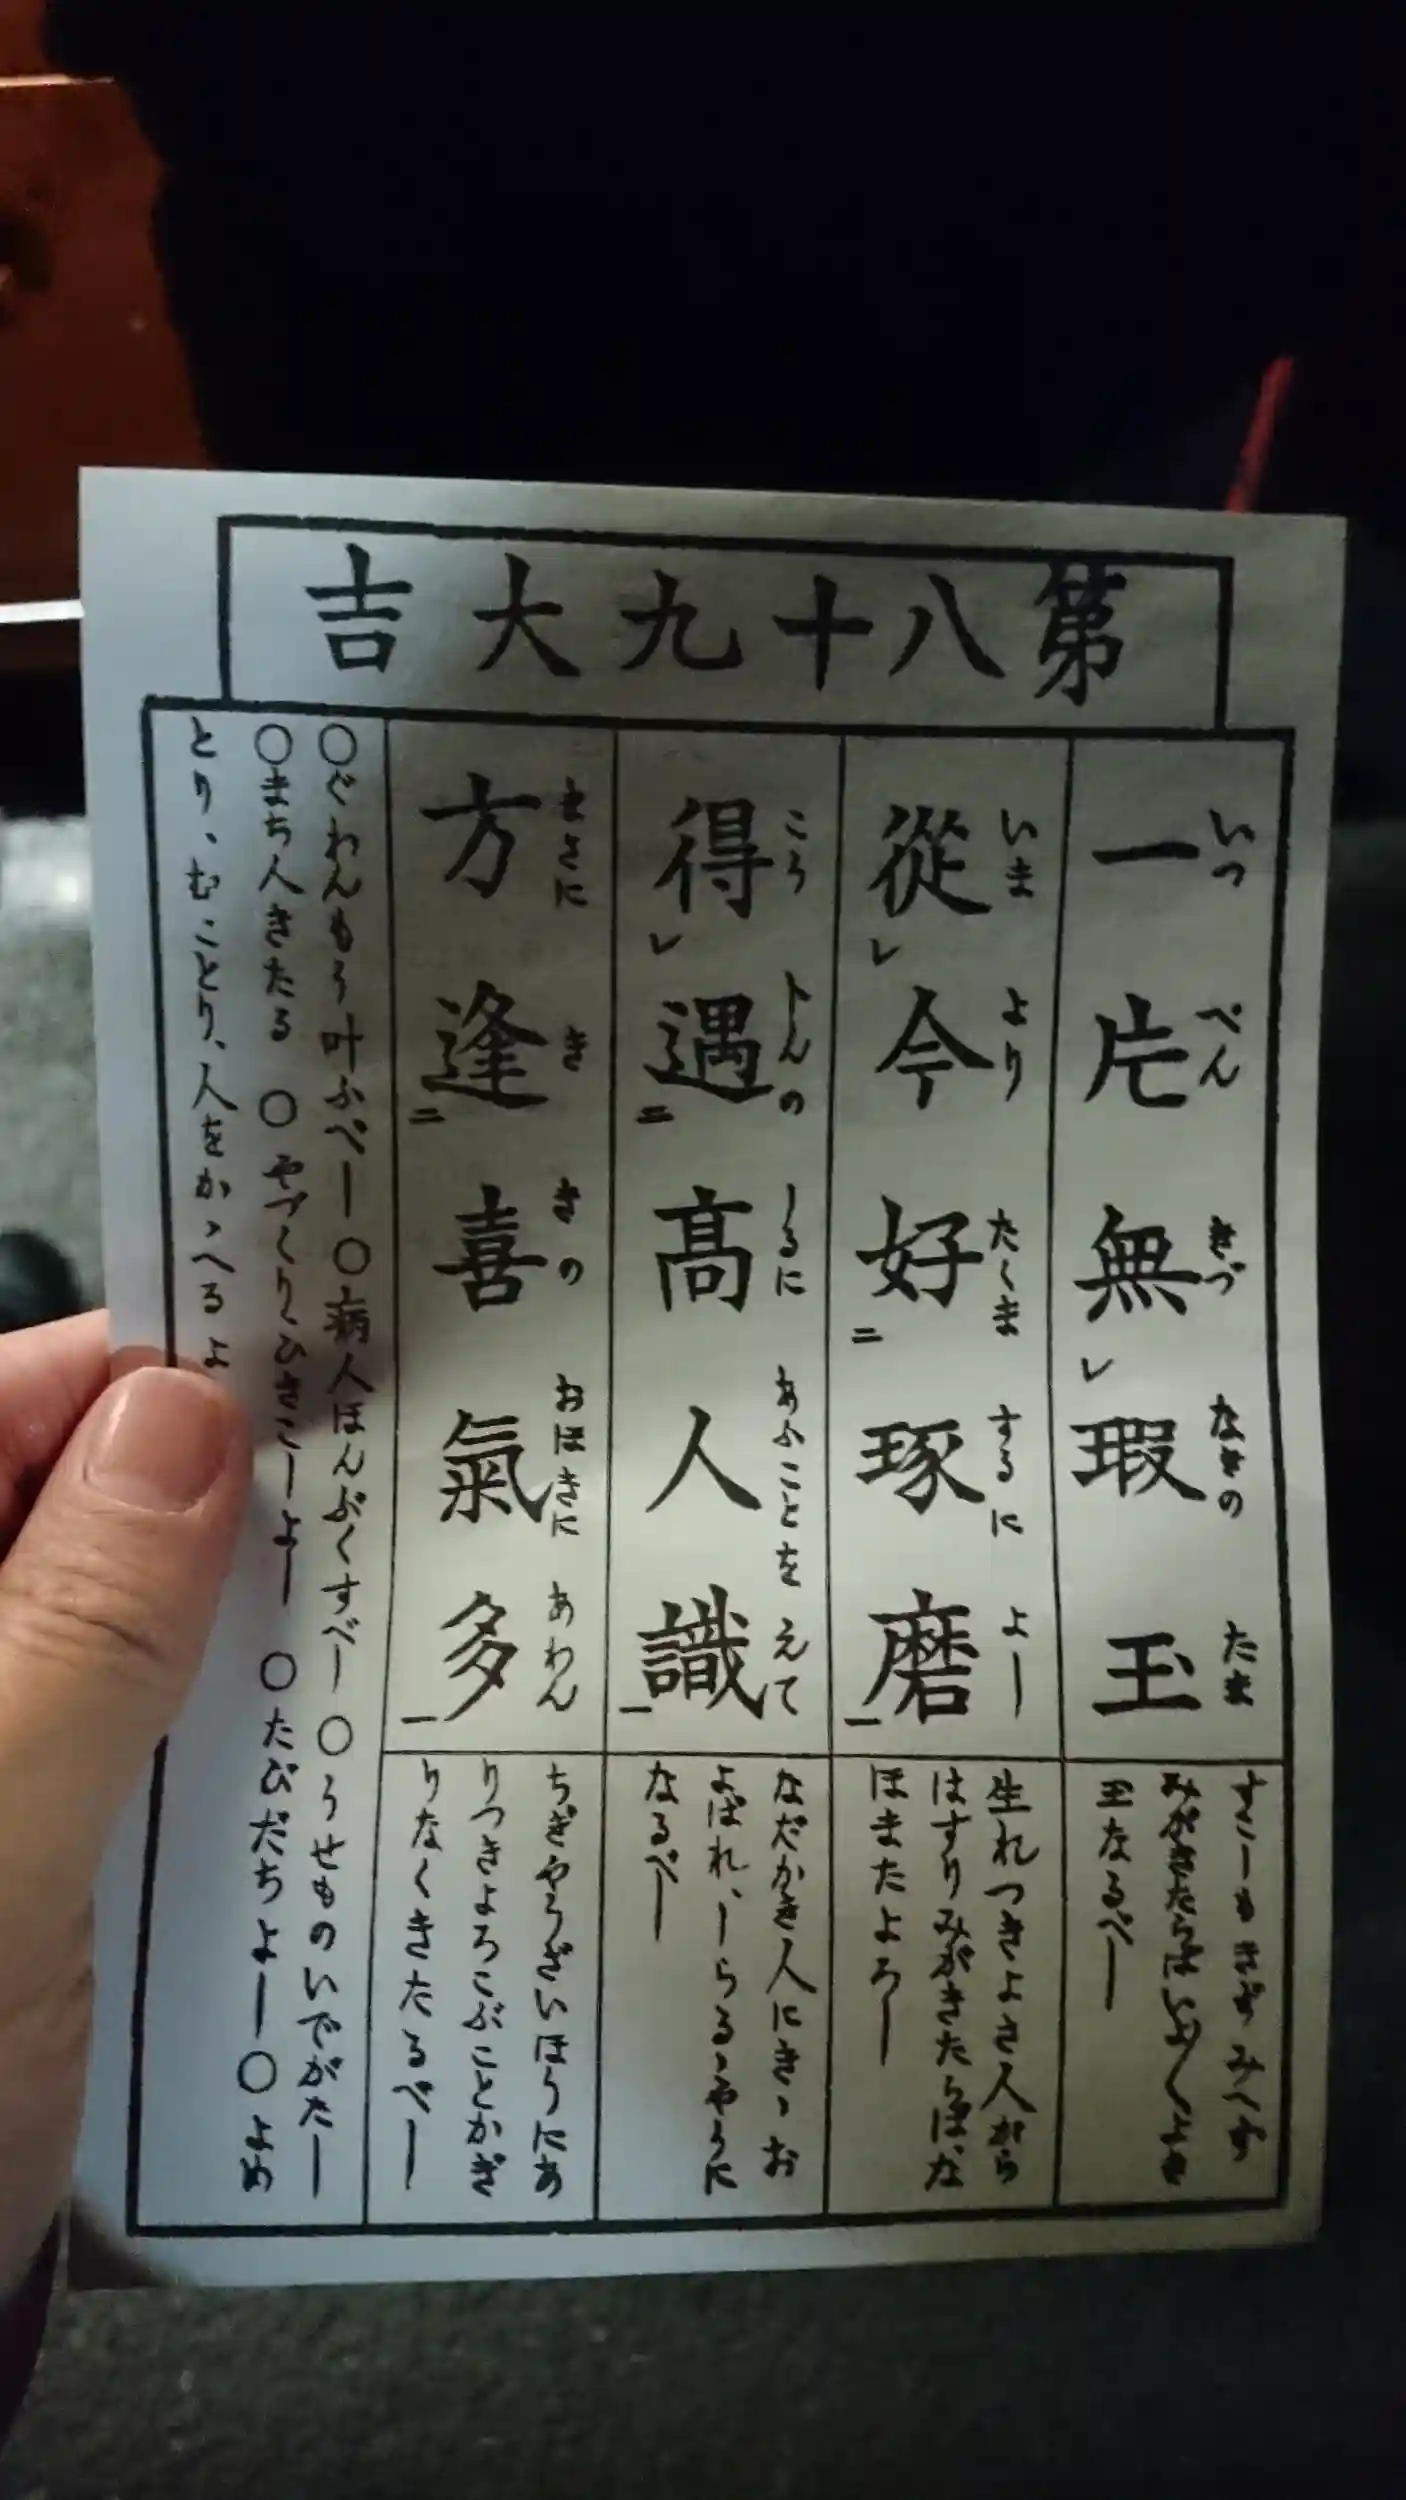 第八十九大吉
一片無瑕玉
いつ ぺん きづ なきの たま
すこしも きずみへず
みがきたらばいよ〳〵よき
玉なるべし
従今好琢磨
いま より たくま するに よし
生れつきよさ人がら
はすりみがきたらばな
ほまたよろし
得遇高人識
こう トんの しるに あふことを えて
なだかき人にきゝお
よばれ、しらるゝやうに
なるべし
方逢喜氣多
まさに き きの おほきに あわん
ちぎやうざいほうにあ
りつきよろこぶことかぎ
りなくきたるべし
〇ぐわんもう叶ふべし〇病人ほんぷくすべし〇うせものいでがたし
〇まち人きたる〇やづくりわひさこしよし〇たびだちよし〇よめ
とり、むことり、人をかゝへるよ